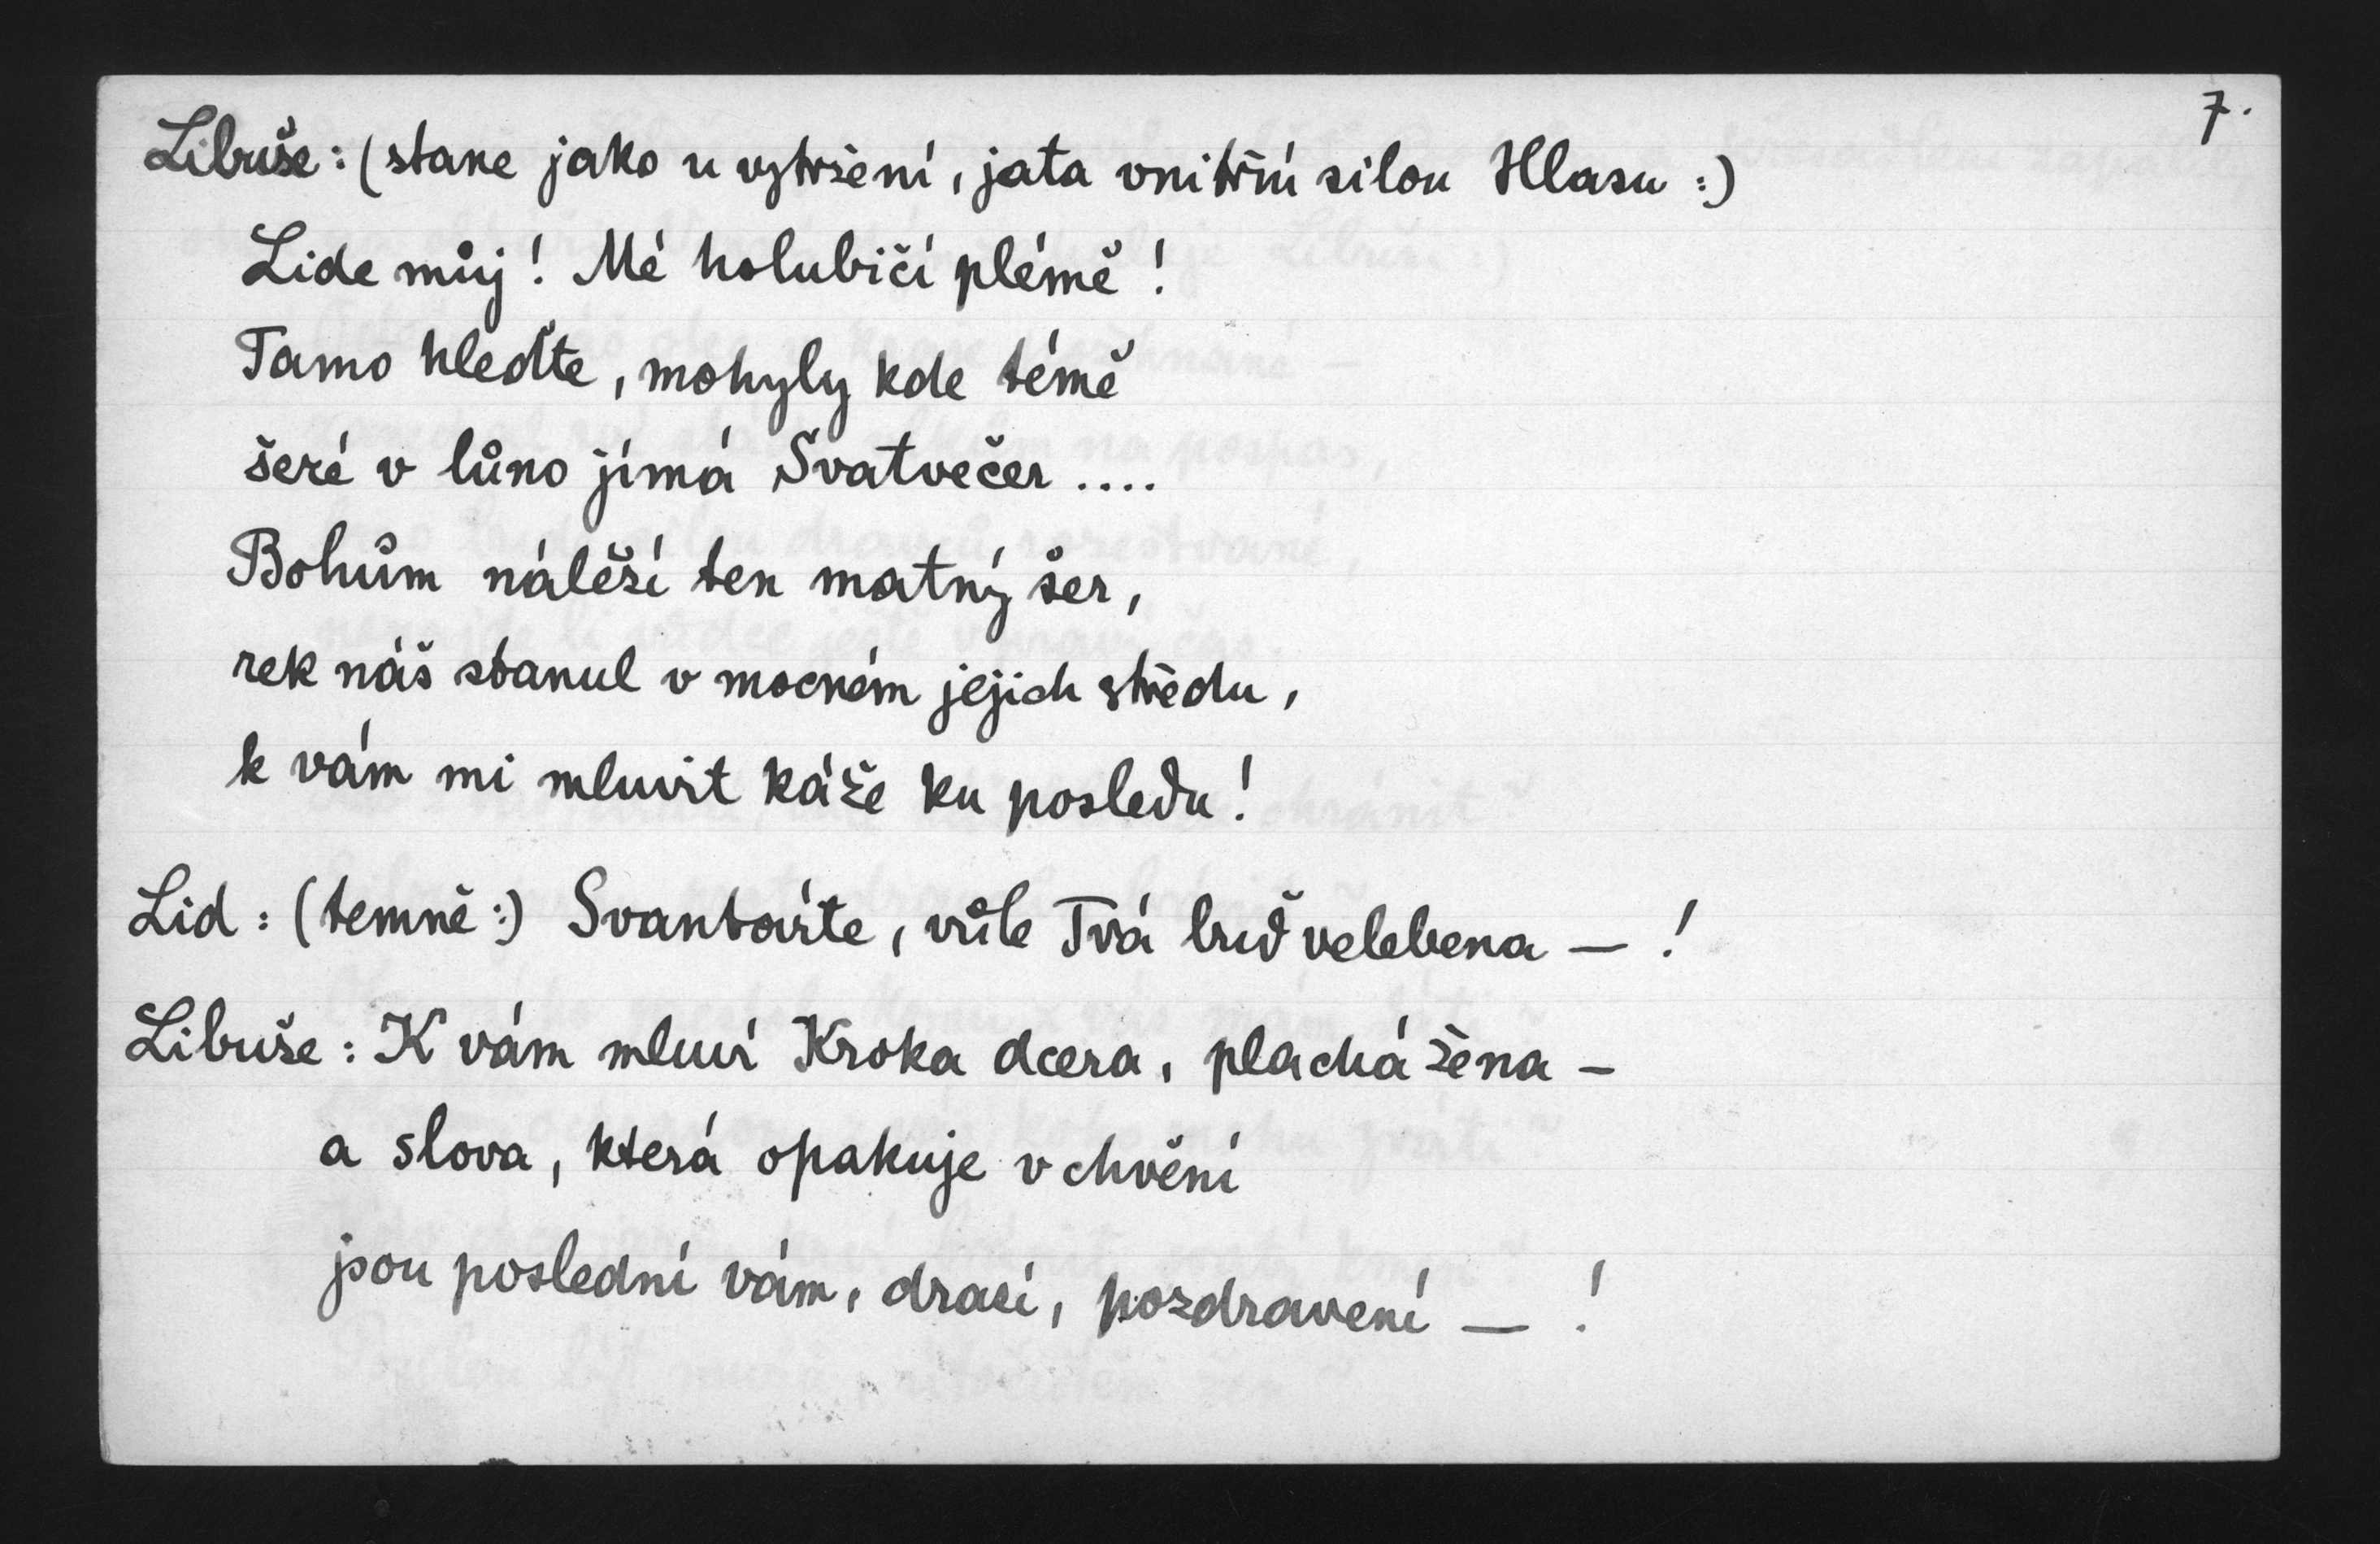 7.
Libuše: (stane jako u vytržení, jata vnitřní silou Hlasu:)
Lide můj! Mé holubičí plémě!
Tamo hleďte, mohyly kde témě
šeré v lůno jímá Svatvečer....
Bohům náleží ten matný šer,
rek náš stanul v mocném jejich středu,
k vám mi mluvit káže ku posledu!
Lid: (temně:) Svantovíte, vůle Tvá buď velebena — !
Libuše: K vám mluví Kroka dcera, plachá žena —
a slova, která opakuje v chvění
jsou poslední vám, drací, pozdravení — !